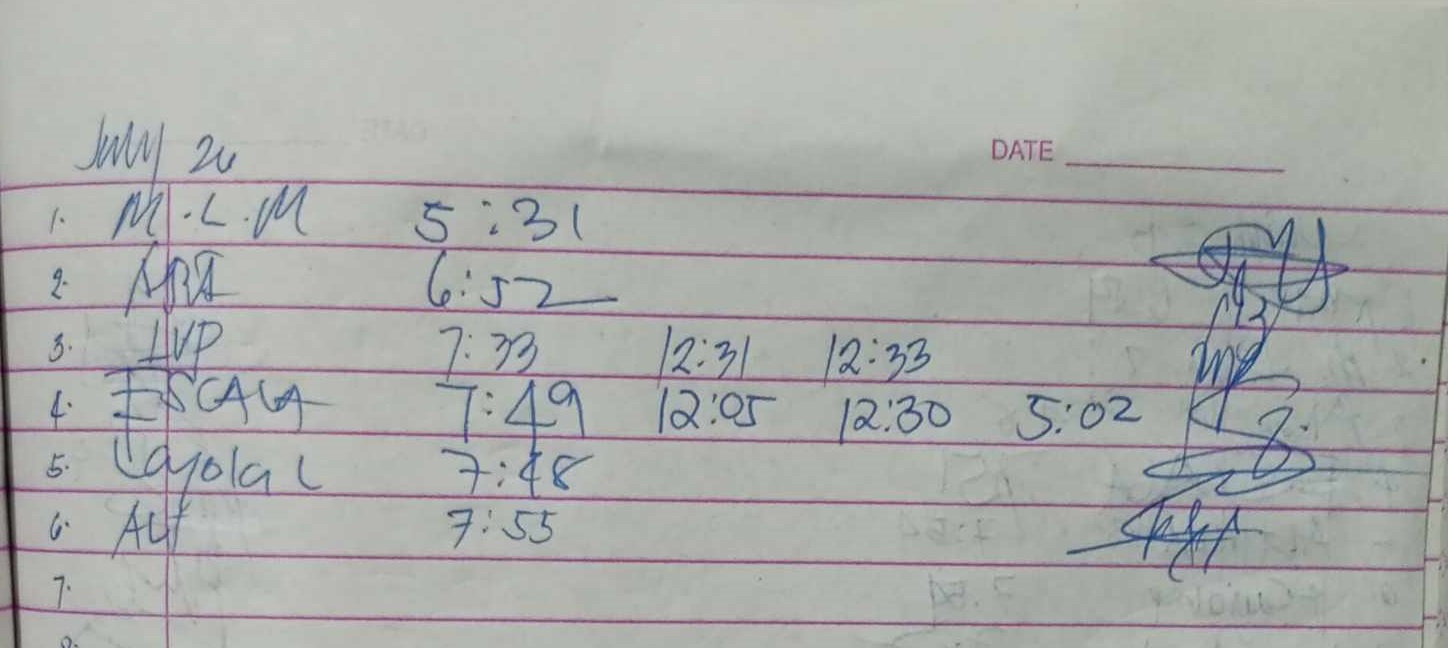 July 26
DATE
1. M.L.M 5:31
2. 6:52
3. LVP 7:33 12:31 12:33
4. ESCALA 7:49 12:05 12:30 5:02
5. Loyola L 7:48
6. 7:55
7.
8.